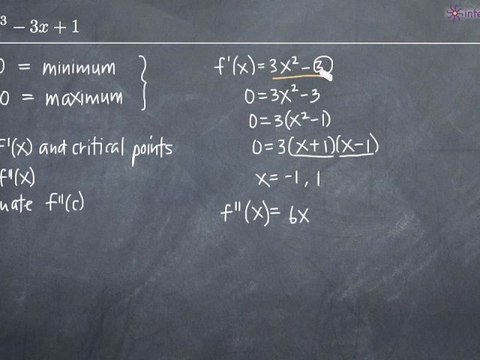 ³ − 3x + 1
0 = minimum
0 = maximum
f'(x) and critical points
f"(x)
uate f"(c)
f'(x) = 3x² − 3
0 = 3x² − 3
0 = 3(x² − 1)
0 = 3(x + 1)(x − 1)
x = −1, 1
f"(x) = 6x